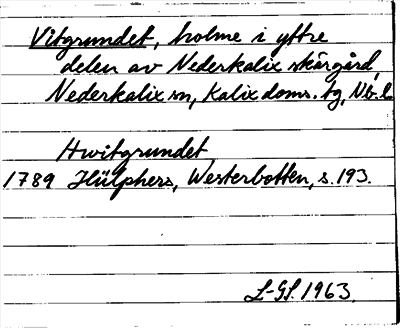 Vitgrundet, holme i yttre
delen av Nederkalix skärgård,
Nederkalix sn, Kalix doms. tg, Nb. l.
Hwitgrundet
1789 Hülphers, Westerbotten, s. 193.
L-GL. 1963.